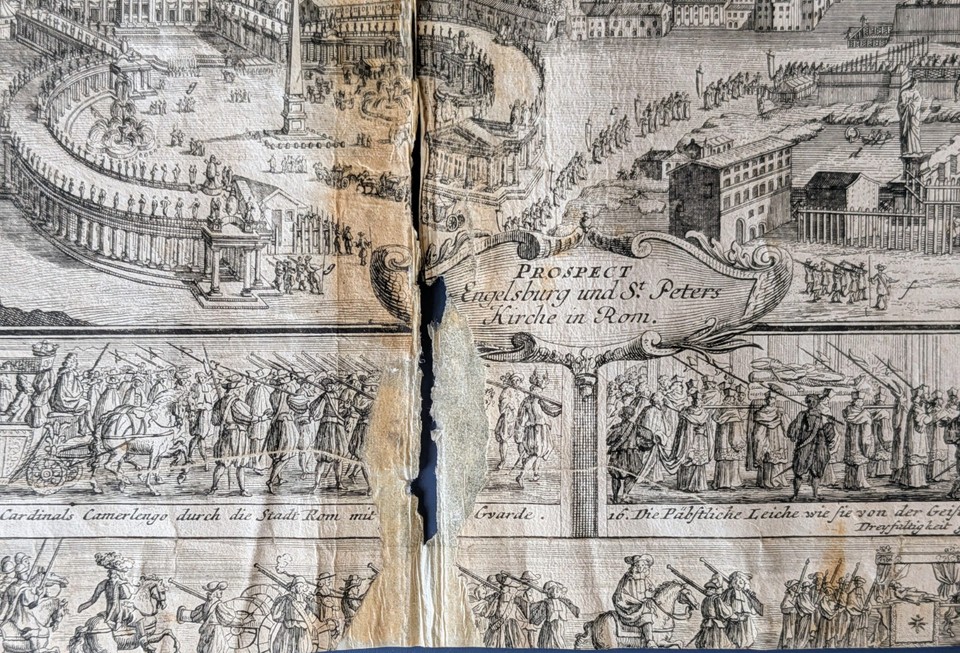 PROSPECT
Engelsburg und St. Peters
Kirche in Rom.
Cardinals Camerlengo durch die Stadt Rom mit Gvarde.
16. Die Päbstliche Leiche wie sie von der Geis
Dreyfaltigkeit